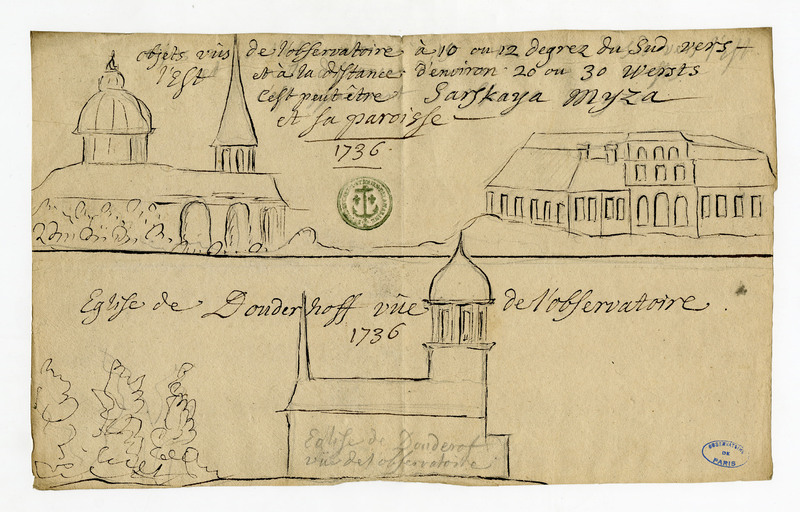 objets vûs de l'observatoire à 10 ou 12 degrez du Sud vers
l'Est et à la distance d'environ 20 ou 30 Wersts
C'est peut être Sarskaya Myza
et sa paroisse
1736
Eglise de Douderhoff vûe de l'observatoire.
1736
Eglise de Douderof
vûe de l'observatoire
OBSERVATOIRE
DE
PARIS